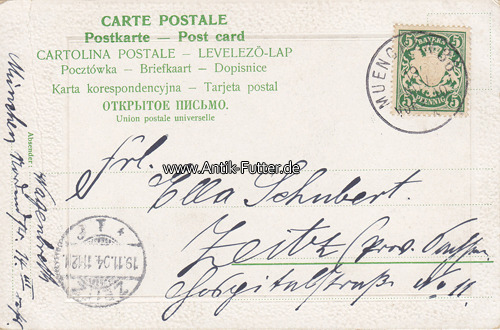 CARTE POSTALE
Postkarte — Post card
CARTOLINA POSTALE - LEVELEZŐ-LAP
Pocztówka - Briefkaart - Dopisnice
Karta korespondencyjna - Tarjeta postal
ОТКРЫТОЕ ПИСЬМО.
Union postale universelle
BAYERN
5 5
5 PFENNIG 5
MUENC
www.Antik-Futter.de
Frl.
Ella Schubert.
Zeitz (Prov. Sachsen
Hospitalstraße No 11
Absender:
Wagenbreth
München, Nordendstr.
19.11.04. 11-12
ZEITZ